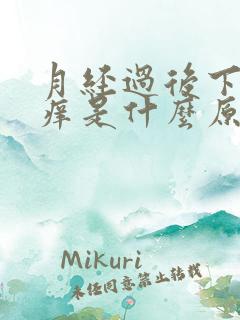 月經過後下
癢是什麼原
Mikuri
未經同意禁止轉載